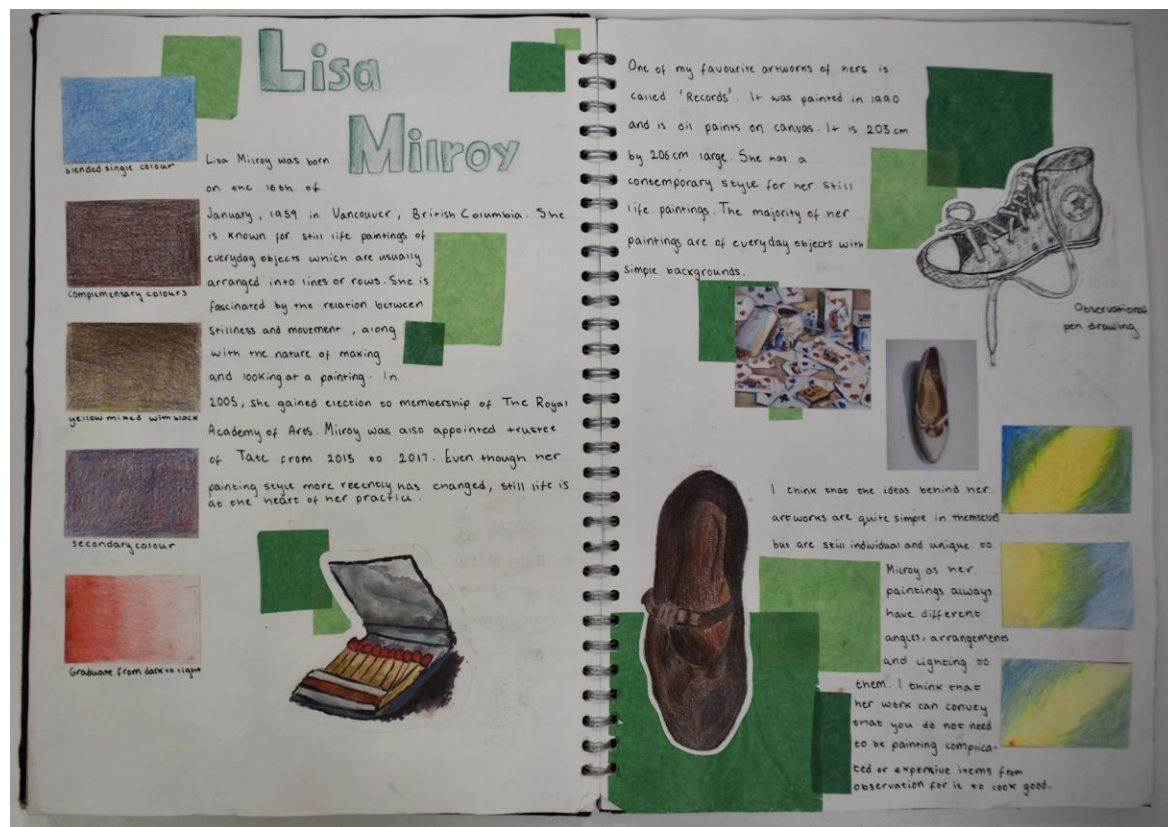 Lisa
Milroy
blended single colour
complimentary colours
yellow mixed with black
secondary colour
Graduate from dark to light
Lisa Milroy was born
on the 16th of
January, 1959 in Vancouver, British Columbia. She
is known for still life paintings of
everyday objects which are usually
arranged into lines or rows. She is
fascinated by the relation between
stillness and movement, along
with the nature of making
and looking at a painting. In
2005, she gained election to membership of The Royal
Academy of Arts. Milroy was also appointed trustee
of Tate from 2013 to 2017. Even though her
painting style more recently has changed, still life is
at the heart of her practice.
One of my favourite artworks of hers is
called 'Records'. It was painted in 1990
and is oil paints on canvas. It is 203 cm
by 206 cm large. She has a
contemporary style for her still
life paintings. The majority of her
paintings are of everyday objects with
simple backgrounds.
Observational
pen drawing
I think that the ideas behind her
artworks are quite simple in themselves
but are still individual and unique to
Milroy as her
paintings always
have different
angles, arrangements
and lighting to
them. I think that
her work can convey
that you do not need
to be painting complica-
ted or expensive items from
observation for it to look good.